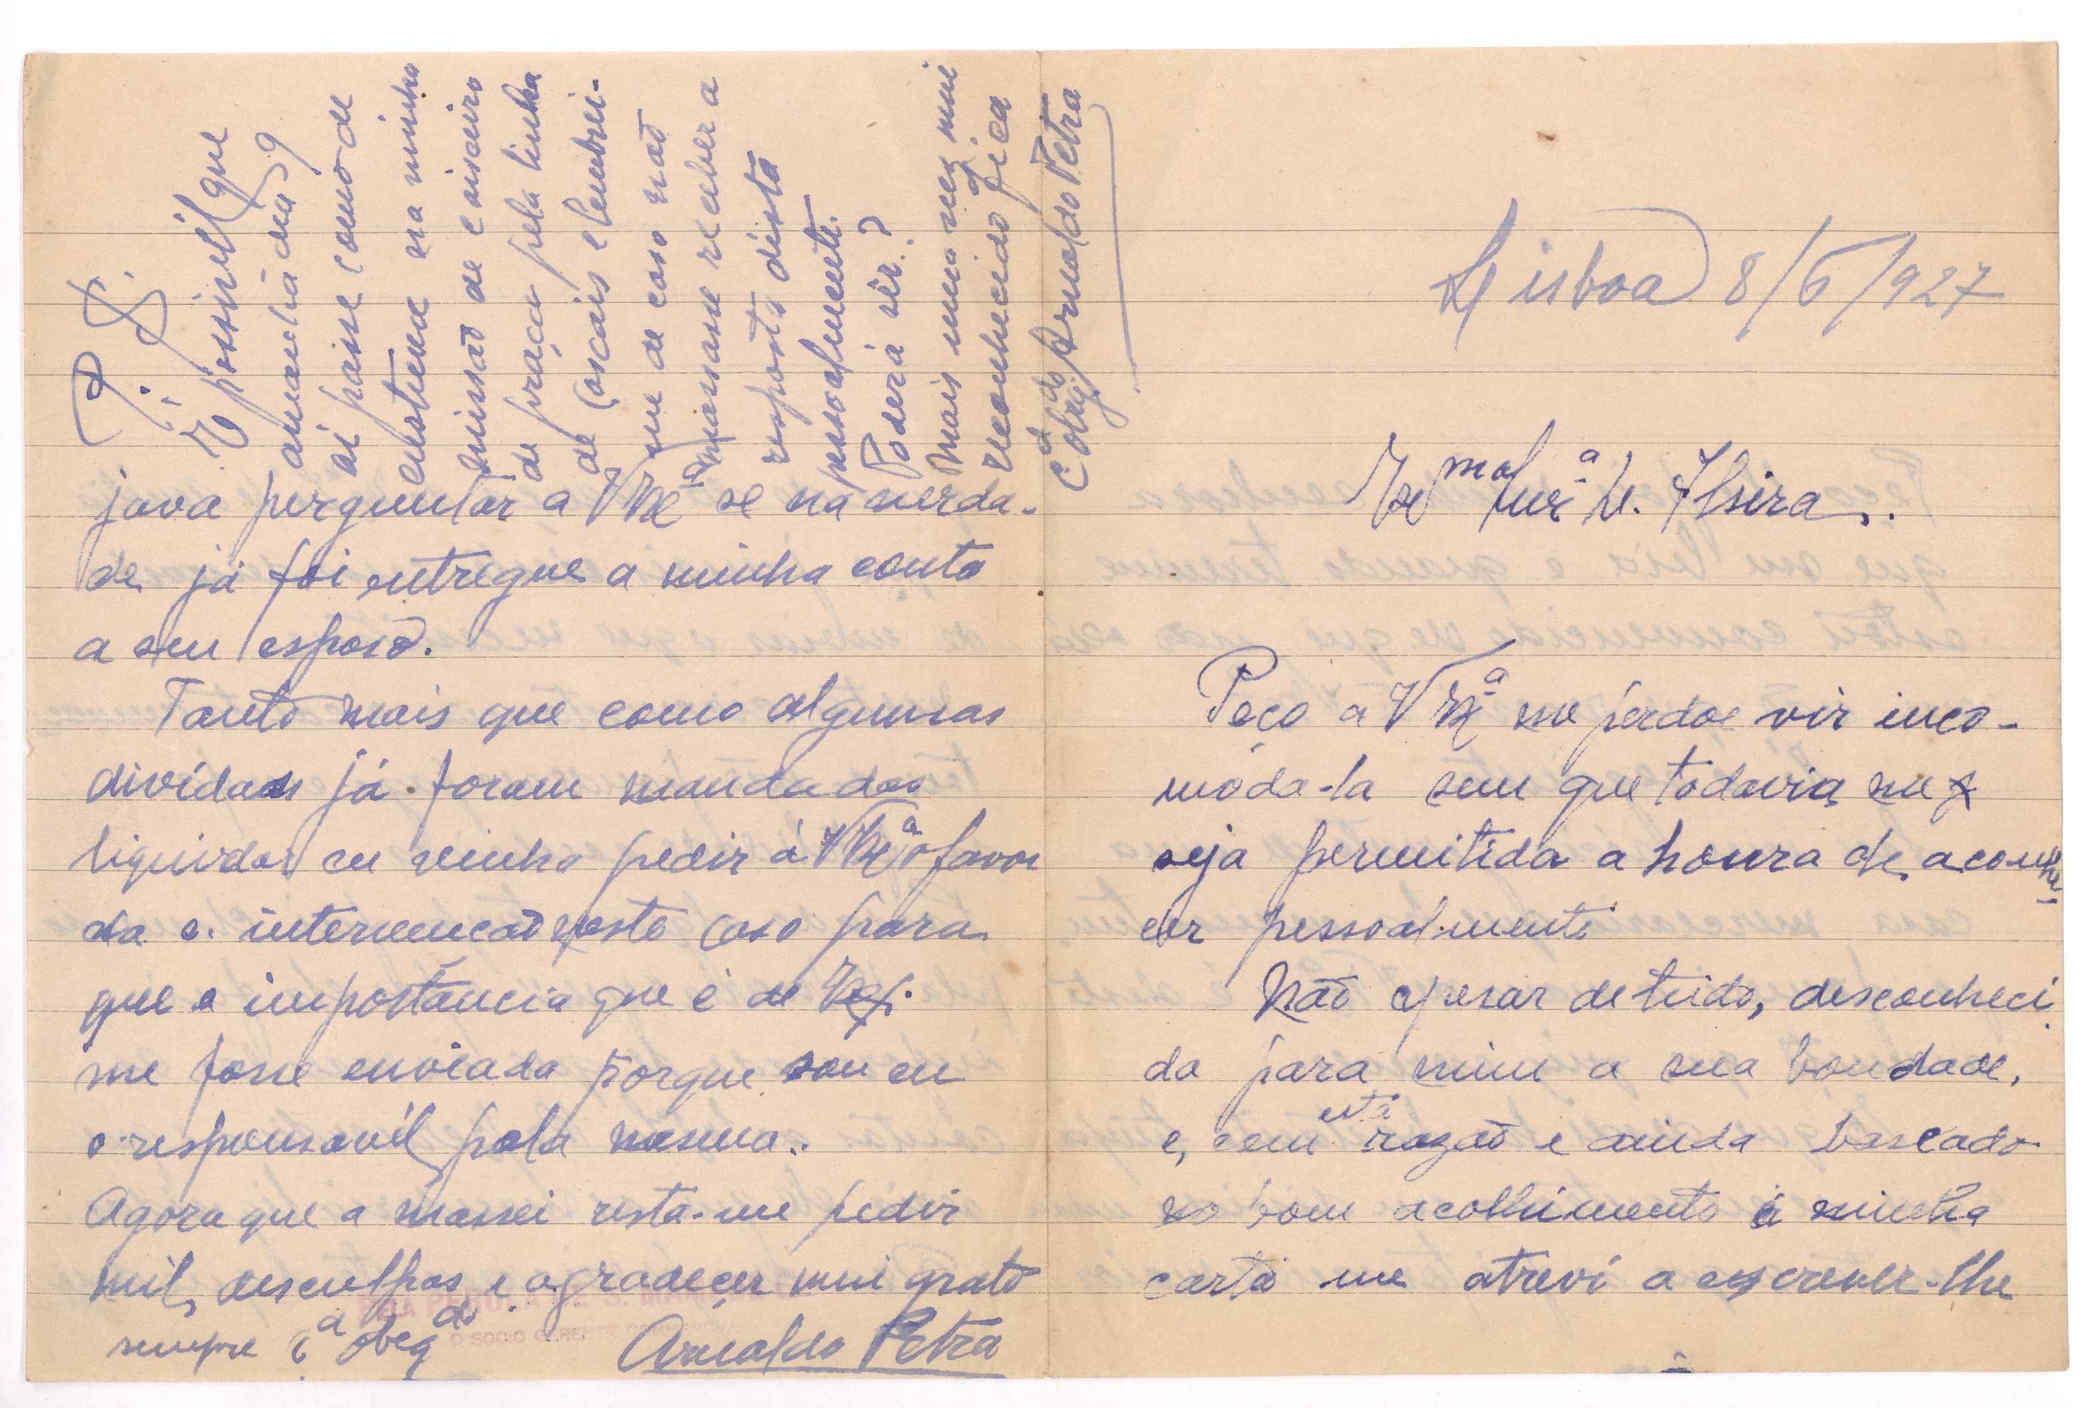 Lisboa 8/6/927
Ex.ma Snr.ª D. Alsira.
Peço a V Ex.ª me perdoe vir inco-
moda-la sem que todavia me
seja permitida a honra de a conhe-
cer pessoalmente
Não apesar de tudo, desconheci
da para mim a sua bondade,
e, com esta razão e ainda baseado
no bom acolhimento á minha
carta me atrevi a escrever-lhe
java perguntar a V Ex.ª se na verda-
de já foi entregue a minha conta
a seu esposo.
Tanto mais que como algumas
dividas já foram mandadas
liquidar eu vinha pedir á V Ex.ª o favor
da s. intervenção neste caso para
que a importancia que é de
me fosse enviada porque sou eu
o responsavél pela mesma.
Agora que a massei resta-me pedir
mil desculpas e agradecer mui grato
sempre C.ª Obrg.do Arnaldo Petra
P. S.
É possivél que
amanhã dia 9
ai passe como de
customae na minha
missão de caixeiro
de praça pela linha
de Cascais e lembrei-
me de caso não
massasse receber a
resposta dista
pessoalmente.
Poderá sêr?
Mais uma vez mui
reconhecido fica
C.do Obrg.do Arnaldo Petra